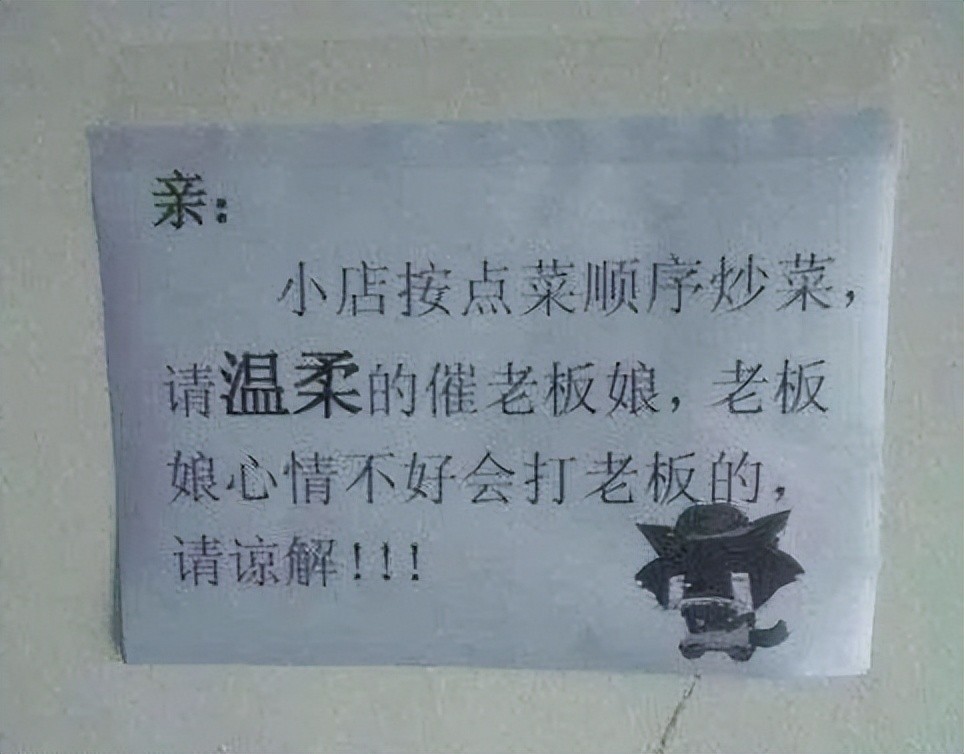 亲:
小店按点菜顺序炒菜，
请温柔的催老板娘，老板
娘心情不好会打老板的，
请谅解！！！